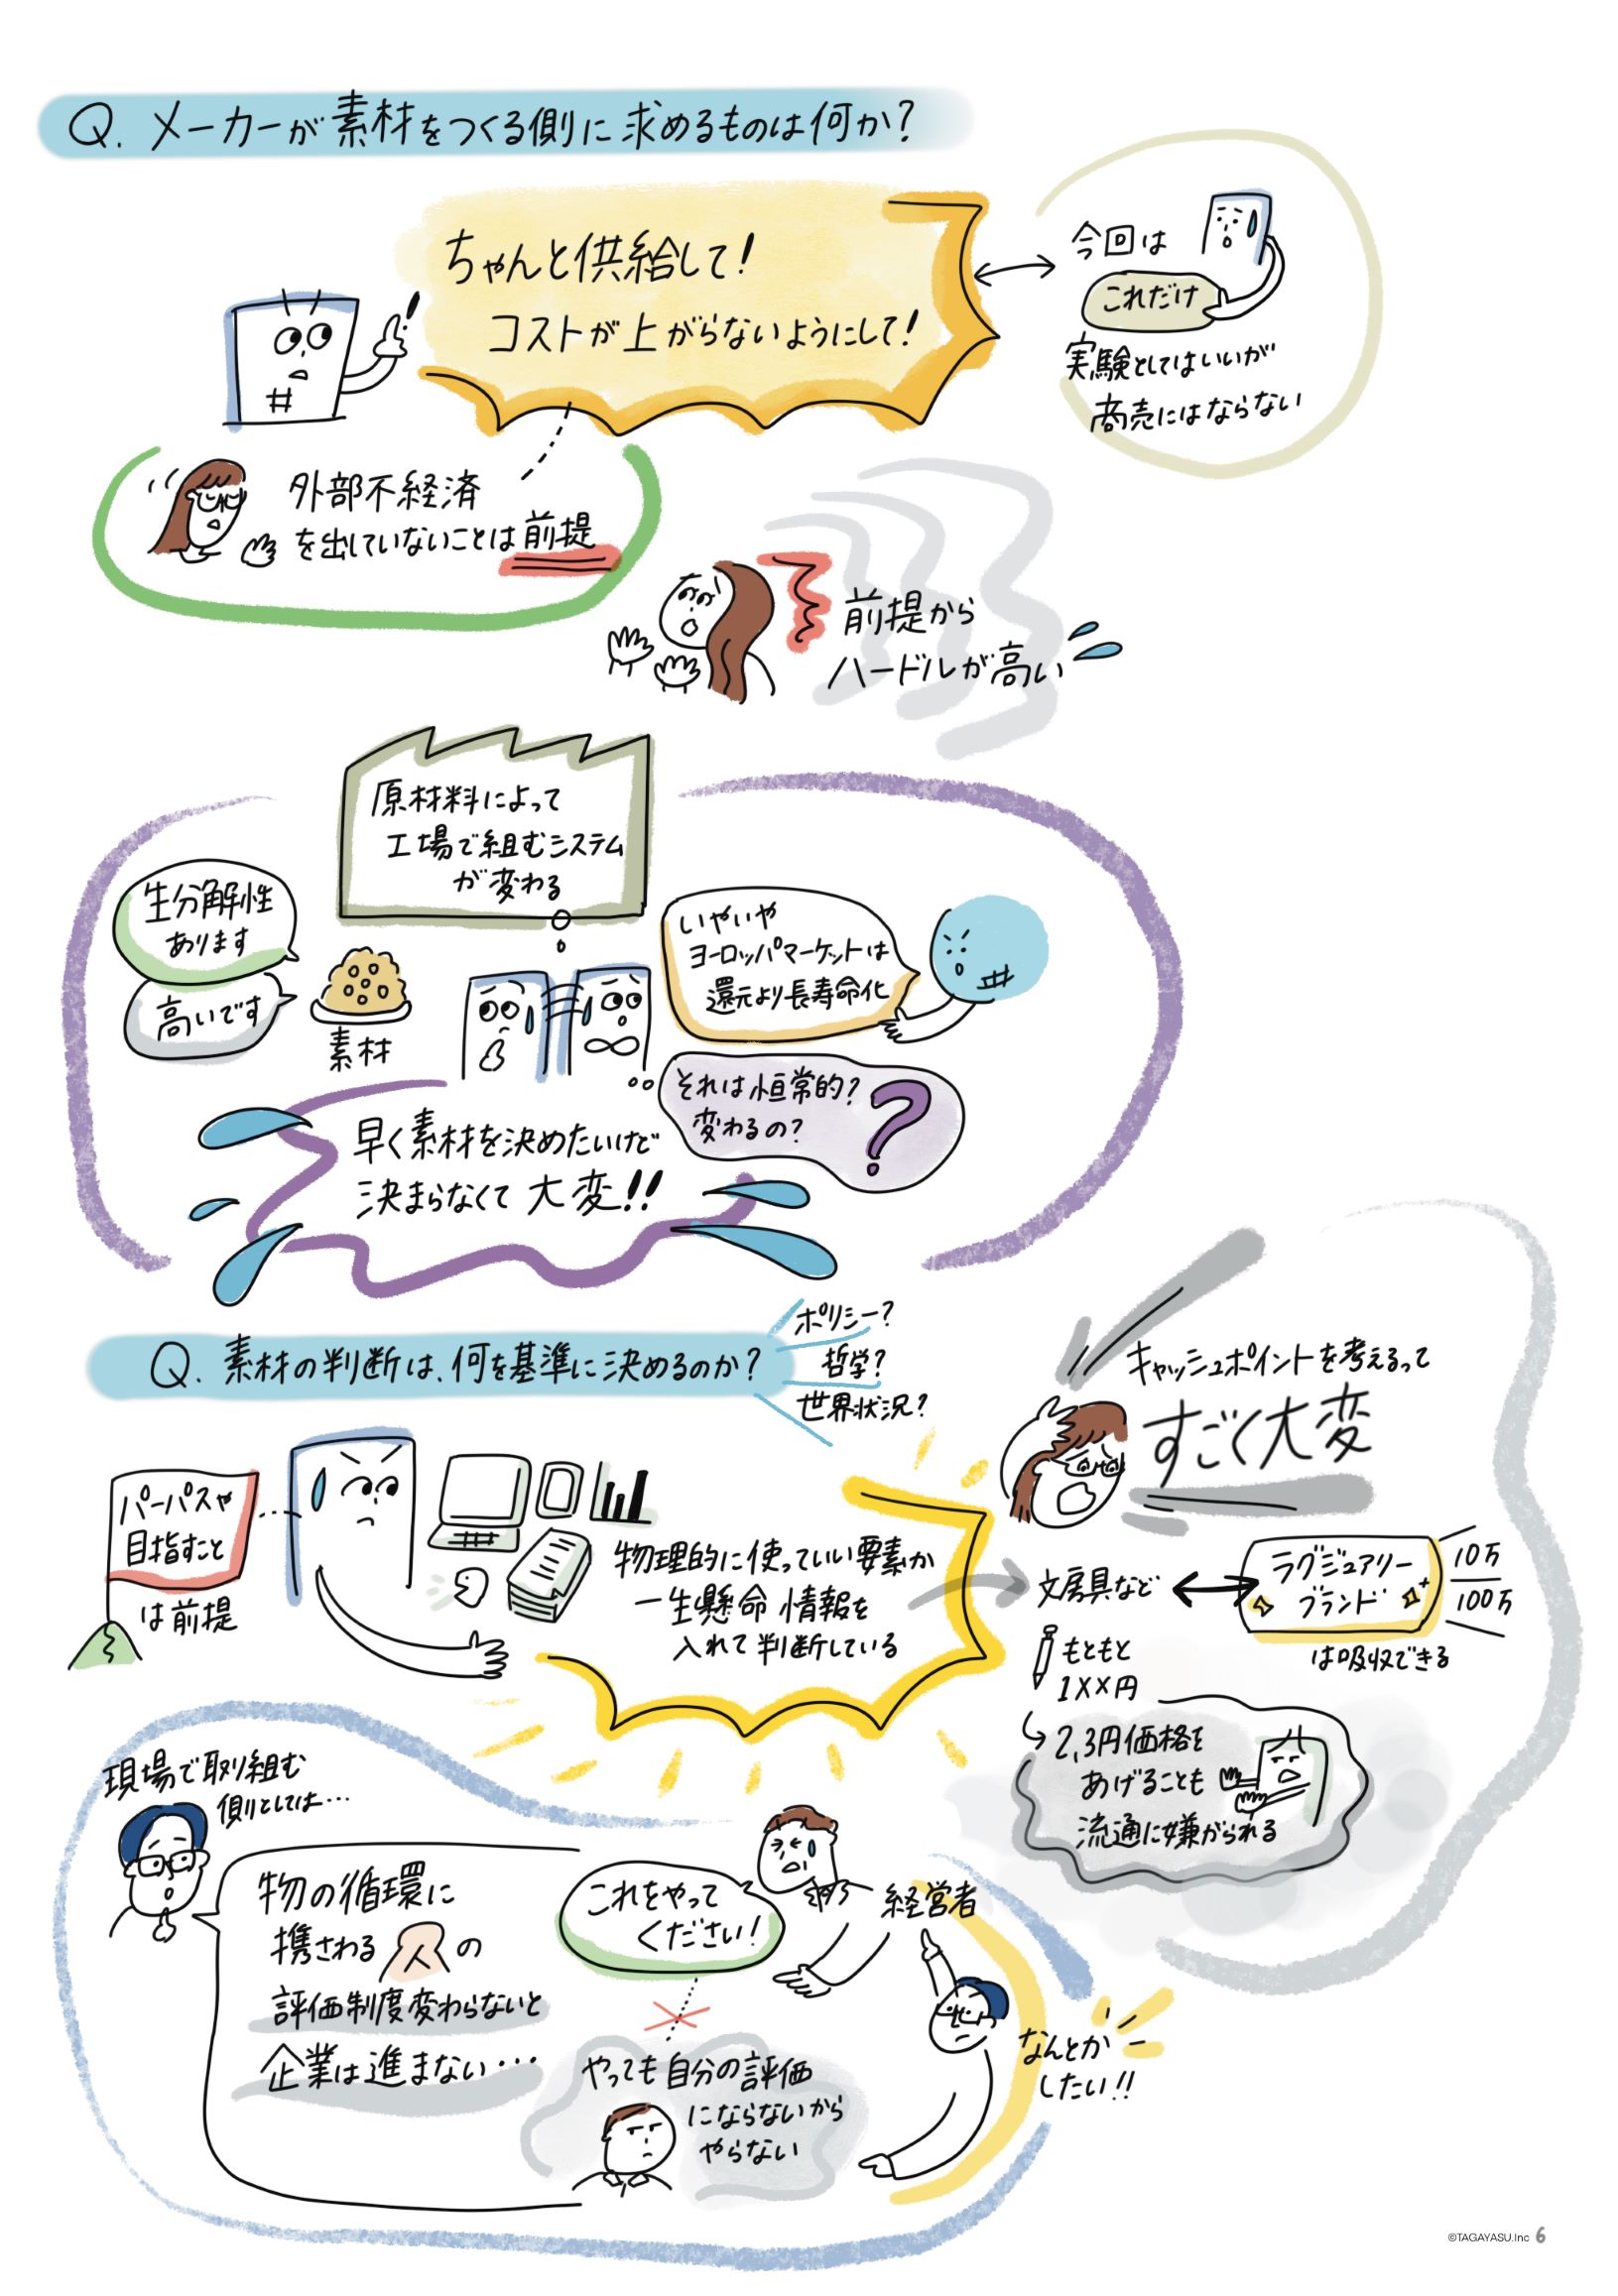 Q. メーカーが素材をつくる側に求めるものは何か?
ちゃんと供給して!
コストが上がらないようにして!
今回は
これだけ
実験としてはいいが
商売にはならない
外部不経済
を出していないことは前提
前提から
ハードルが高い
原材料によって
工場で組むシステム
が変わる
生分解性
あります
高いです
素材
いやいや
ヨーロッパマーケットは
還元より長寿命化
それは恒常的?
変わるの?
?
早く素材を決めたいけど
決まらなくて大変!!
Q. 素材の判断は、何を基準に決めるのか?
ポリシー?
哲学?
世界状況?
パーパスや
目指すこと
は前提
物理的に使っていい要素か
一生懸命 情報を
入れて判断している
キャッシュポイントを考えるって
すごく大変
文房具など
ラグジュアリー
ブランド
10万
100万
は吸収できる
もともと
1××円
2,3円価格を
あげることも
流通に嫌がられる
現場で取り組む
側としては…
物の循環に
携さわる人の
評価制度変わらないと
企業は進まない…
これをやって
ください!
経営者
やっても自分の評価
にならないから
やらない
なんとか
したい!!
©TAGAYASU.Inc 6